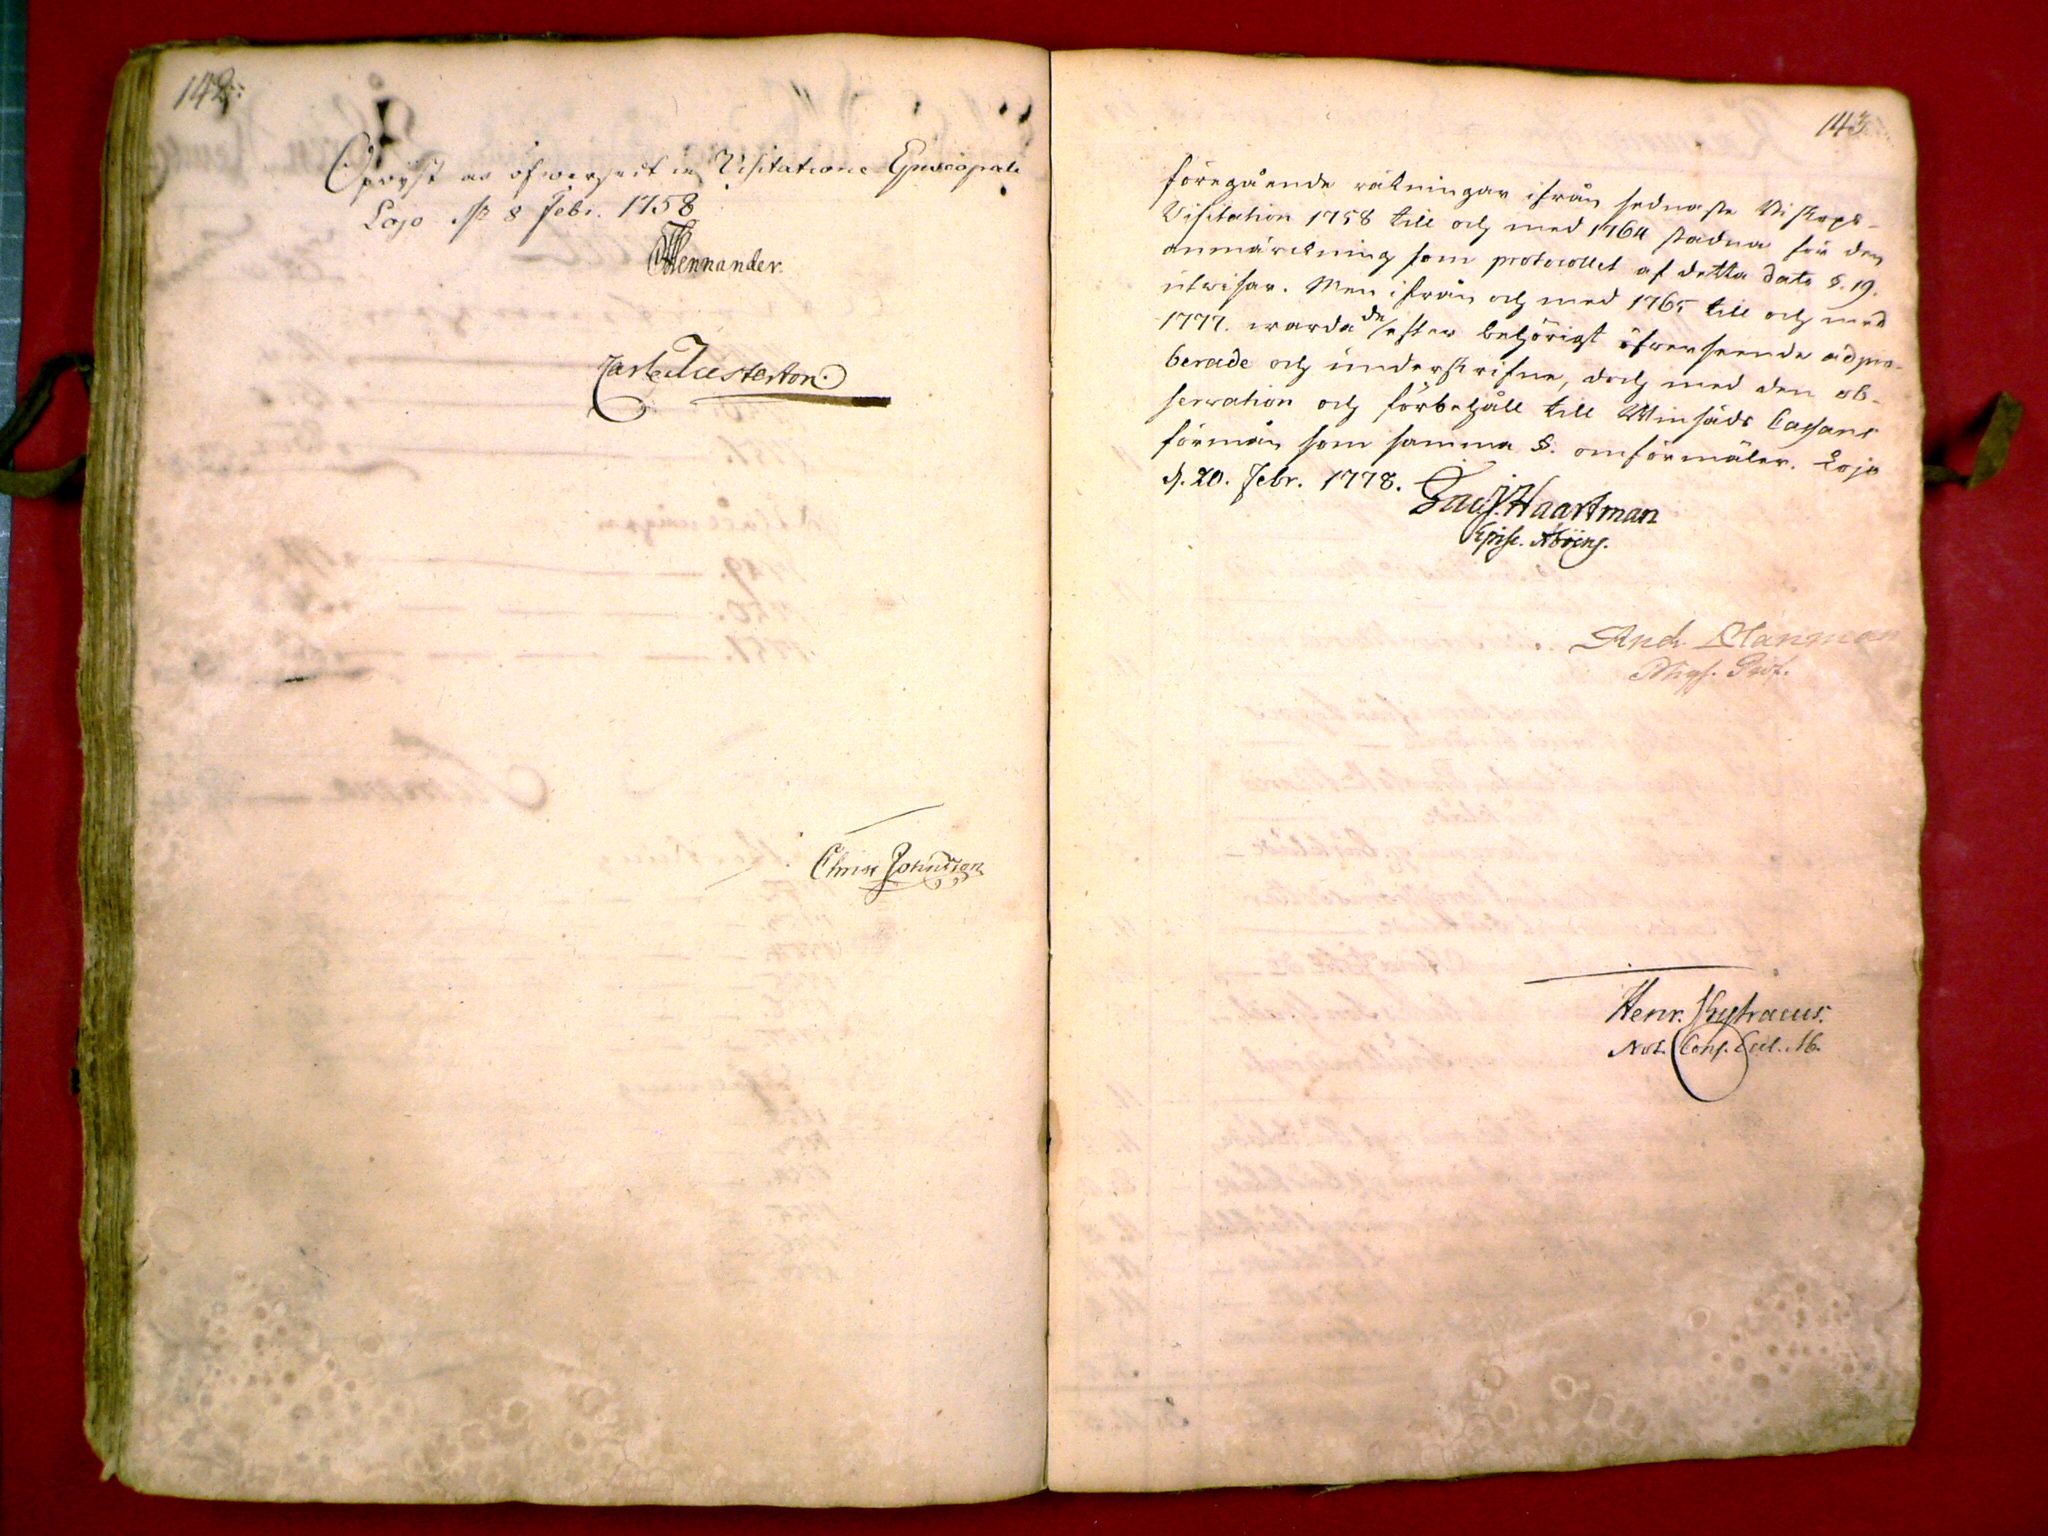 142.
Opvist av öfwersedt in Visitatione Episcopali
Lojo d. 8 Febr. 1758
Mennander.
Carl Mesterton.
Christ Johnsson
143.
föregående räkningar ifrån sednaste Biskops
Visitation 1758 till och med 1764 stadna för den
anmärckning som protocollet af detta dato §. 19.
utwisar. Men ifrån och med 1765 till och med
1777. warda de efter behörigt öfwerseende adpro-
berade och underskrifne, doch med den ob-
servation och förbehåll till Winsäds Cassans
förmån som samma §. omförmäler. Lojo
d. 20. Febr. 1778.
Jac. Haartman
Episc. Aboens.
And. Planman
Phys. Prof.
Henr.
Not. Cons. Eccl. Ab.